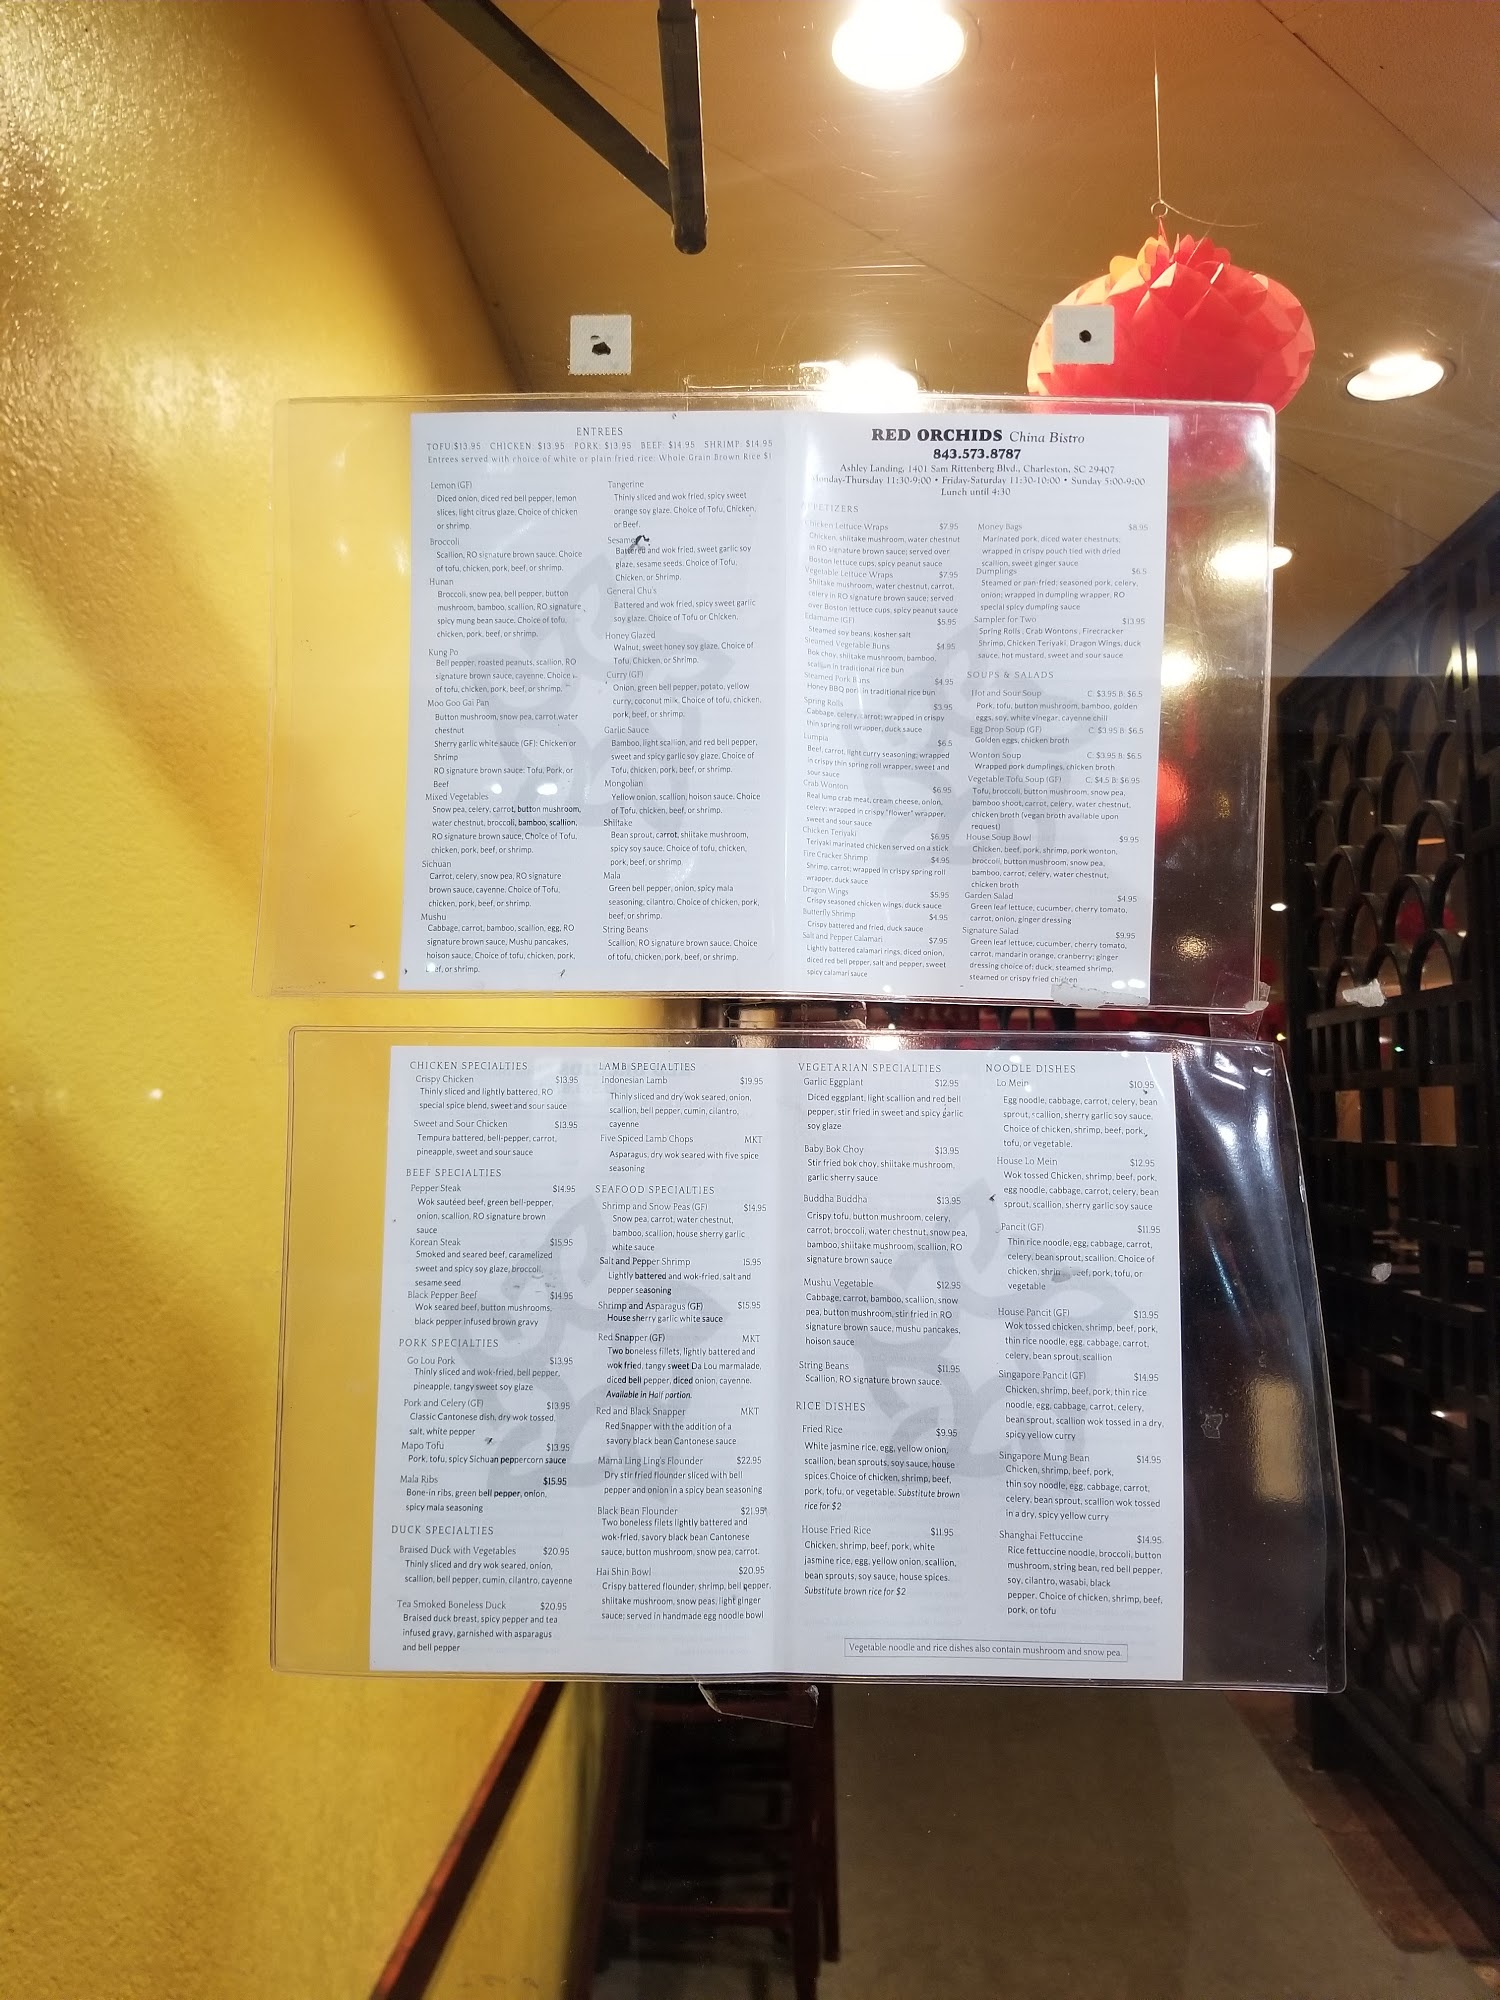 ENTREES
TOFU:$13.95 CHICKEN: $13.95 PORK: $13.95 BEEF: $14.95 SHRIMP: $14.95
Entrees served with choice of white or plain fried rice. Whole Grain Brown Rice $1
Lemon (GF)
Diced onion, diced red bell pepper, lemon
slices, light citrus glaze. Choice of chicken
or shrimp.
Broccoli
Scallion, RO signature brown sauce. Choice
of tofu, chicken, pork, beef, or shrimp.
Hunan
Broccoli, snow pea, bell pepper, button
mushroom, bamboo, scallion, RO signature
spicy mung bean sauce. Choice of tofu,
chicken, pork, beef, or shrimp.
Kung Po
Bell pepper, roasted peanuts, scallion, RO
signature brown sauce, cayenne. Choice
of tofu, chicken, pork, beef, or shrimp.
Moo Goo Gai Pan
Button mushroom, snow pea, carrot,water
chestnut
Sherry garlic white sauce (GF): Chicken or
Shrimp
RO signature brown sauce: Tofu, Pork, or
Beef
Mixed Vegetables
Snow pea, celery, carrot, button mushroom,
water chestnut, broccoli, bamboo, scallion,
RO signature brown sauce, Choice of Tofu,
chicken, pork, beef, or shrimp.
Sichuan
Carrot, celery, snow pea, RO signature
brown sauce, cayenne. Choice of Tofu,
chicken, pork, beef, or shrimp.
Mushu
Cabbage, carrot, bamboo, scallion, egg, RO
signature brown sauce, Mushu pancakes,
hoison sauce, Choice of tofu, chicken, pork,
beef, or shrimp.
Tangerine
Thinly sliced and wok fried, spicy sweet
orange soy glaze. Choice of Tofu, Chicken,
or Beef.
Sesame
Battered and wok fried, sweet garlic soy
glaze, sesame seeds. Choice of Tofu,
Chicken, or Shrimp.
General Chu's
Battered and wok fried, spicy sweet garlic
soy glaze. Choice of Tofu or Chicken.
Honey Glazed
Walnut, sweet honey soy glaze. Choice of
Tofu, Chicken, or Shrimp.
Curry (GF)
Onion, green bell pepper, potato, yellow
curry, coconut milk. Choice of tofu, chicken,
pork, beef, or shrimp.
Garlic Sauce
Bamboo, light scallion, and red bell pepper,
sweet and spicy garlic soy glaze. Choice of
Tofu, chicken, pork, beef, or shrimp.
Mongolian
Yellow onion, scallion, hoison sauce. Choice
of Tofu, chicken, beef, or shrimp.
Shiitake
Bean sprout, carrot, shiitake mushroom,
spicy soy sauce. Choice of tofu, chicken,
pork, beef, or shrimp.
Mala
Green bell pepper, onion, spicy mala
seasoning, cilantro. Choice of chicken, pork,
beef, or shrimp.
String Beans
Scallion, RO signature brown sauce. Choice
of tofu, chicken, pork, beef, or shrimp.
RED ORCHIDS China Bistro
843.573.8787
Ashley Landing, 1401 Sam Rittenberg Blvd., Charleston, SC 29407
Monday-Thursday 11:30-9:00 • Friday-Saturday 11:30-10:00 • Sunday 5:00-9:00
Lunch until 4:30
APPETIZERS
Chicken Lettuce Wraps $7.95
Chicken, shiitake mushroom, water chestnut
in RO signature brown sauce; served over
Boston lettuce cups, spicy peanut sauce
Vegetable Lettuce Wraps $7.95
Shiitake mushroom, water chestnut, carrot,
celery in RO signature brown sauce; served
over Boston lettuce cups, spicy peanut sauce
Edamame (GF) $5.95
Steamed soy beans, kosher salt
Steamed Vegetable Buns $4.95
Bok choy, shiitake mushroom, bamboo,
scallion in traditional rice bun
Steamed Pork Buns $4.95
Honey BBQ pork in traditional rice bun
Spring Rolls $3.95
Cabbage, celery, carrot; wrapped in crispy
thin spring roll wrapper, duck sauce
Lumpia $6.5
Beef, carrot, light curry seasoning; wrapped
in crispy thin spring roll wrapper, sweet and
sour sauce
Crab Wonton $6.95
Real lump crab meat, cream cheese, onion,
celery; wrapped in crispy "flower" wrapper,
sweet and sour sauce
Chicken Teriyaki $6.95
Teriyaki marinated chicken served on a stick
Fire Cracker Shrimp $4.95
Shrimp, carrot; wrapped in crispy spring roll
wrapper, duck sauce
Dragon Wings $5.95
Crispy seasoned chicken wings, duck sauce
Butterfly Shrimp $4.95
Crispy battered and fried, duck sauce
Salt and Pepper Calamari $7.95
Lightly battered calamari rings, diced onion,
diced red bell pepper, salt and pepper, sweet
spicy calamari sauce
Money Bags $8.95
Marinated pork, diced water chestnuts;
wrapped in crispy pouch tied with dried
scallion, sweet ginger sauce
Dumplings $6.5
Steamed or pan-fried; seasoned pork, celery,
onion; wrapped in dumpling wrapper, RO
special spicy dumpling sauce
Sampler for Two $13.95
Spring Rolls, Crab Wontons, Firecracker
Shrimp, Chicken Teriyaki, Dragon Wings, duck
sauce, hot mustard, sweet and sour sauce
SOUPS & SALADS
Hot and Sour Soup C: $3.95 B: $6.5
Pork, tofu, button mushroom, bamboo, golden
eggs, soy, white vinegar, cayenne chili
Egg Drop Soup (GF) C: $3.95 B: $6.5
Golden eggs, chicken broth
Wonton Soup C: $3.95 B: $6.5
Wrapped pork dumplings, chicken broth
Vegetable Tofu Soup (GF) C: $4.5 B: $6.95
Tofu, broccoli, button mushroom, snow pea,
bamboo shoot, carrot, celery, water chestnut,
chicken broth (vegan broth available upon
request)
House Soup Bowl $9.95
Chicken, beef, pork, shrimp, pork wonton,
broccoli, button mushroom, snow pea,
bamboo, carrot, celery, water chestnut,
chicken broth
Garden Salad $4.95
Green leaf lettuce, cucumber, cherry tomato,
carrot, onion, ginger dressing
Signature Salad $9.95
Green leaf lettuce, cucumber, cherry tomato,
carrot, mandarin orange, cranberry; ginger
dressing choice of: duck, steamed shrimp,
steamed or crispy fried chicken
CHICKEN SPECIALTIES
Crispy Chicken $13.95
Thinly sliced and lightly battered, RO
special spice blend, sweet and sour sauce
Sweet and Sour Chicken $13.95
Tempura battered, bell-pepper, carrot,
pineapple, sweet and sour sauce
BEEF SPECIALTIES
Pepper Steak $14.95
Wok sautéed beef, green bell-pepper,
onion, scallion, RO signature brown
sauce
Korean Steak $15.95
Smoked and seared beef, caramelized
sweet and spicy soy glaze, broccoli,
sesame seed
Black Pepper Beef $14.95
Wok seared beef, button mushrooms,
black pepper infused brown gravy
PORK SPECIALTIES
Go Lou Pork $13.95
Thinly sliced and wok-fried, bell pepper,
pineapple, tangy sweet soy glaze
Pork and Celery (GF) $13.95
Classic Cantonese dish, dry wok tossed,
salt, white pepper
Mapo Tofu $13.95
Pork, tofu, spicy Sichuan peppercorn sauce
Mala Ribs $15.95
Bone-in ribs, green bell pepper, onion,
spicy mala seasoning
DUCK SPECIALTIES
Braised Duck with Vegetables $20.95
Thinly sliced and dry wok seared, onion,
scallion, bell pepper, cumin, cilantro, cayenne
Tea Smoked Boneless Duck $20.95
Braised duck breast, spicy pepper and tea
infused gravy, garnished with asparagus
and bell pepper
LAMB SPECIALTIES
Indonesian Lamb $19.95
Thinly sliced and dry wok seared, onion,
scallion, bell pepper, cumin, cilantro,
cayenne
Five Spiced Lamb Chops MKT
Asparagus, dry wok seared with five spice
seasoning
SEAFOOD SPECIALTIES
Shrimp and Snow Peas (GF) $14.95
Snow pea, carrot, water chestnut,
bamboo, scallion, house sherry garlic
white sauce
Salt and Pepper Shrimp 15.95
Lightly battered and wok-fried, salt and
pepper seasoning
Shrimp and Asparagus (GF) $15.95
House sherry garlic white sauce
Red Snapper (GF) MKT
Two boneless fillets, lightly battered and
wok fried, tangy sweet Da Lou marmalade,
diced bell pepper, diced onion, cayenne.
Available in Half portion.
Red and Black Snapper MKT
Red Snapper with the addition of a
savory black bean Cantonese sauce
Mama Ling Ling's Flounder $22.95
Dry stir fried flounder sliced with bell
pepper and onion in a spicy bean seasoning
Black Bean Flounder $21.95
Two boneless filets lightly battered and
wok-fried, savory black bean Cantonese
sauce, button mushroom, snow pea, carrot.
Hai Shin Bowl $20.95
Crispy battered flounder, shrimp, bell pepper,
shiitake mushroom, snow peas, light ginger
sauce; served in handmade egg noodle bowl
VEGETARIAN SPECIALTIES
Garlic Eggplant $12.95
Diced eggplant, light scallion and red bell
pepper, stir fried in sweet and spicy garlic
soy glaze
Baby Bok Choy $13.95
Stir fried bok choy, shiitake mushroom,
garlic sherry sauce
Buddha Buddha $13.95
Crispy tofu, button mushroom, celery,
carrot, broccoli, water chestnut, snow pea,
bamboo, shiitake mushroom, scallion, RO
signature brown sauce
Mushu Vegetable $12.95
Cabbage, carrot, bamboo, scallion, snow
pea, button mushroom, stir fried in RO
signature brown sauce, mushu pancakes,
hoison sauce
String Beans $11.95
Scallion, RO signature brown sauce.
RICE DISHES
Fried Rice $9.95
White jasmine rice, egg, yellow onion,
scallion, bean sprouts, soy sauce, house
spices.Choice of chicken, shrimp, beef,
pork, tofu, or vegetable. Substitute brown
rice for $2
House Fried Rice $11.95
Chicken, shrimp, beef, pork, white
jasmine rice, egg, yellow onion, scallion,
bean sprouts, soy sauce, house spices.
Substitute brown rice for $2
NOODLE DISHES
Lo Mein $10.95
Egg noodle, cabbage, carrot, celery, bean
sprout, scallion, sherry garlic soy sauce.
Choice of chicken, shrimp, beef, pork,
tofu, or vegetable.
House Lo Mein $12.95
Wok tossed Chicken, shrimp, beef, pork,
egg noodle, cabbage, carrot, celery, bean
sprout, scallion, sherry garlic soy sauce
Pancit (GF) $11.95
Thin rice noodle, egg, cabbage, carrot,
celery, bean sprout, scallion. Choice of
chicken, shrimp, beef, pork, tofu, or
vegetable
House Pancit (GF) $13.95
Wok tossed chicken, shrimp, beef, pork,
thin rice noodle, egg, cabbage, carrot,
celery, bean sprout, scallion
Singapore Pancit (GF) $14.95
Chicken, shrimp, beef, pork, thin rice
noodle, egg, cabbage, carrot, celery,
bean sprout, scallion wok tossed in a dry,
spicy yellow curry
Singapore Mung Bean $14.95
Chicken, shrimp, beef, pork,
thin soy noodle, egg, cabbage, carrot,
celery, bean sprout, scallion wok tossed
in a dry, spicy yellow curry
Shanghai Fettuccine $14.95
Rice fettuccine noodle, broccoli, button
mushroom, string bean, red bell pepper,
soy, cilantro, wasabi, black
pepper. Choice of chicken, shrimp, beef,
pork, or tofu
Vegetable noodle and rice dishes also contain mushroom and snow pea.